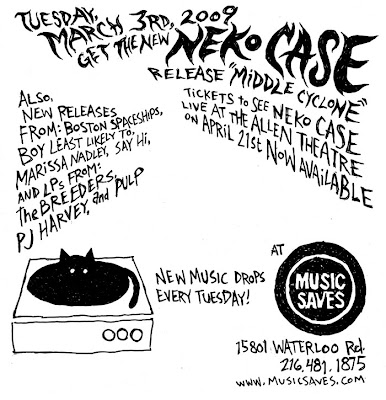 TUESDAY,
MARCH 3RD, 2009
GET THE NEW NEKO CASE
RELEASE "MIDDLE CYCLONE"
TICKETS TO SEE NEKO CASE
LIVE AT THE ALLEN THEATRE
ON APRIL 21st NOW AVAILABLE
Also,
NEW RELEASES
FROM: BOSTON SPACESHIPS,
BOY LEAST LIKELY TO,
MARISSA NADLEY, SAY HI,
AND LPs FROM:
the BREEDERS,
PJ HARVEY, and PULP
NEW MUSIC DROPS
EVERY TUESDAY!
AT
MUSIC
SAVES
15801 WATERLOO Rd.
216.481.1875
WWW.MUSICSAVES.COM